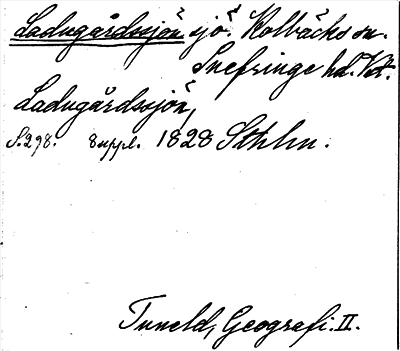 Ladugårdssjön sjö. Kolbäcks sn.
Snefringe hd. Vstm.
Ladugårdssjön,
S. 298. Suppl. 1828 Sthlm.
Tuneld, Geografi. II.